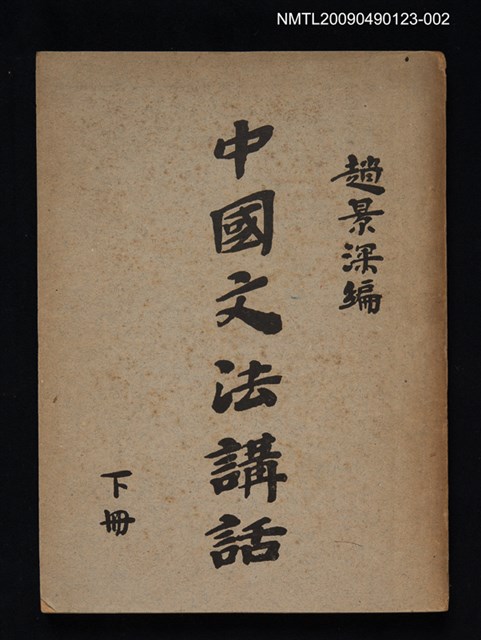 NMTL20090490123-002
趙景深編
中國文法講話
下冊